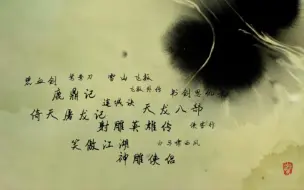 碧血剑 鸳鸯刀 雪山飞狐
飞狐外传 书剑恩仇
鹿鼎记 连城诀 天龙八部
倚天屠龙记
射雕英雄传 侠客行
笑傲江湖 白马啸西风
神雕侠侣